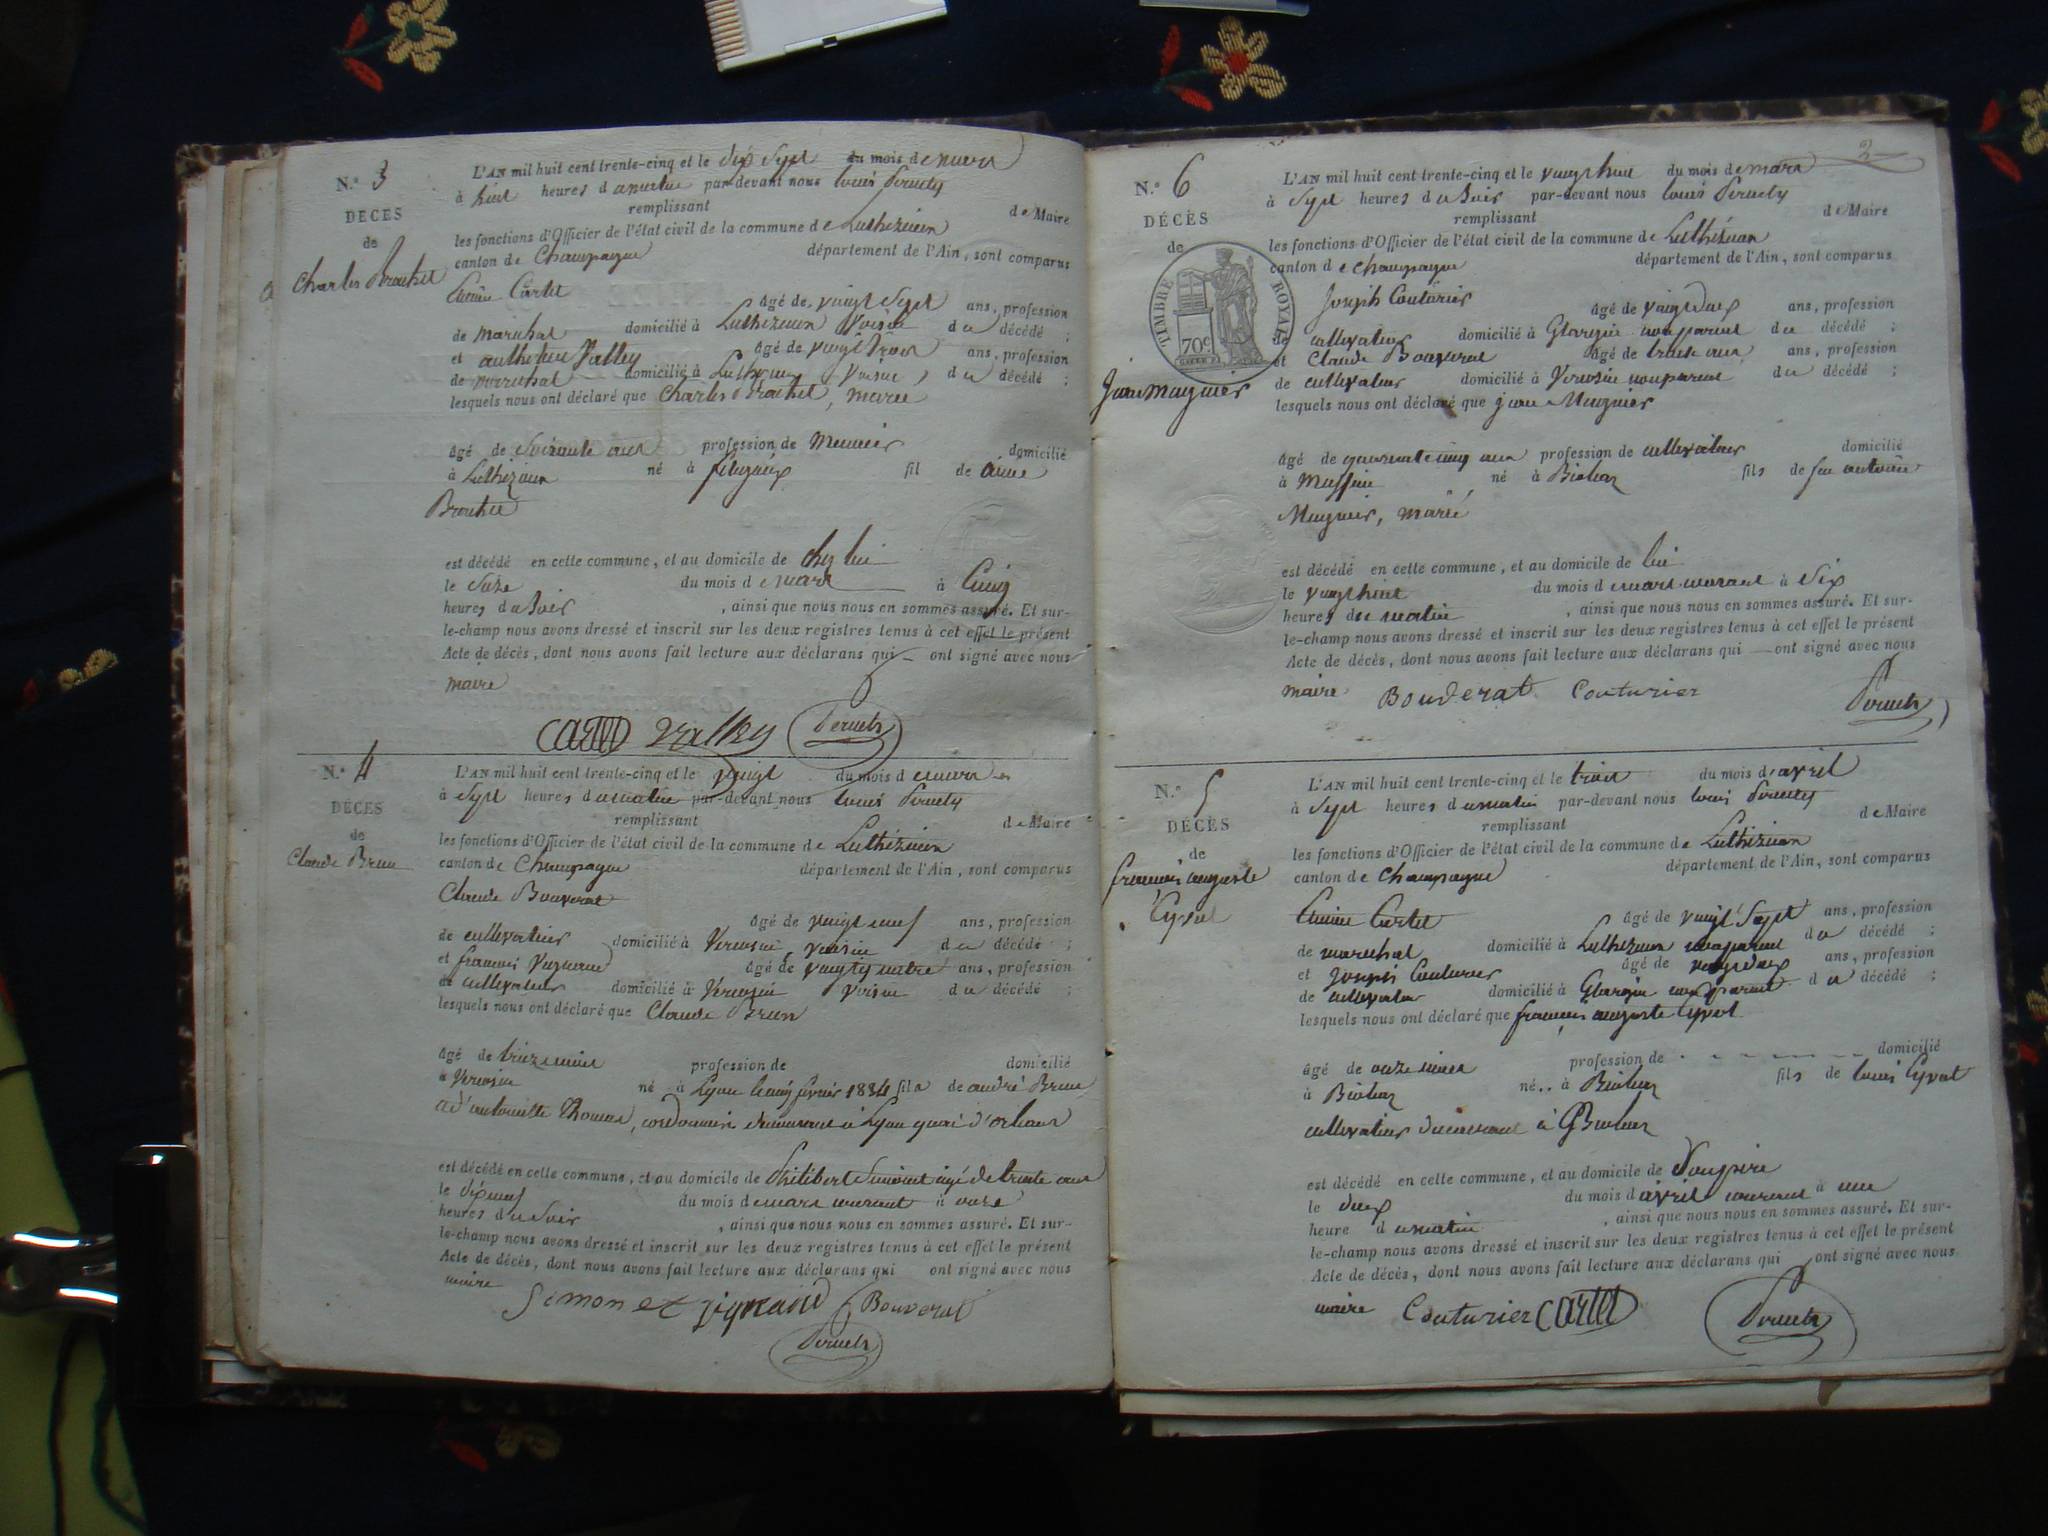 N.º 3
DÉCÈS
de
Charles Brouhet
L'AN mil huit cent trente-cinq et le dix sept du mois de mars
à huit heures du matin par-devant nous Louis
remplissant de Maire
les fonctions d'Officier de l'état civil de la commune de Luthézieu
canton de Champagne département de l'Ain, sont comparus
Cartet
âgé de vaingt sept ans, profession
de marechal domicilié à Luthezieu voisin du décédé ;
et Valley âgé de vaingt trois ans, profession
de marechal domicilié à voisin du décédé ;
lesquels nous ont déclaré que Charles Brouhet, marié
âgé de soixante ans profession de meunier domicilié
à Luthezieu né à fil de
est décédé en cette commune, et au domicile de chez lui
le seize du mois de mars à cinq
heures du soir , ainsi que nous nous en sommes assuré. Et sur-
le-champ nous avons dressé et inscrit sur les deux registres tenus à cet effet le présent
Acte de décès, dont nous avons fait lecture aux déclarans qui ont signé avec nous
maire
Cartet Valley
N.º 4
DÉCÈS
de
Claude Brun
L'AN mil huit cent trente-cinq et le vaingt du mois de mars
à sept heures du matin par-devant nous Louis
remplissant de Maire
les fonctions d'Officier de l'état civil de la commune de Luthézieu
canton de Champagne département de l'Ain, sont comparus
Claude Bouverat
âgé de vaingt neuf ans, profession
de cultivateur domicilié à voisin du décédé ;
et francois âgé de vaingt quatre ans, profession
de cultivateur domicilié à voisin du décédé ;
lesquels nous ont déclaré que Claude Brun
âgé de treize mois profession de domicilié
à né à Lyon le février 1834 fils de andré Brun
et d'antoinette, cordonnier demeurant à Lyon quai d'orleans
est décédé en cette commune, et au domicile de Philibert Simonet agé de trente ans
le dix neuf du mois de mars courant à onze
heures du soir , ainsi que nous nous en sommes assuré. Et sur-
le-champ nous avons dressé et inscrit sur les deux registres tenus à cet effet le présent
Acte de décès, dont nous avons fait lecture aux déclarans qui ont signé avec nous
maire
Simonet Bouverat
2
N.º 6
DÉCÈS
de
TIMBRE ROYAL
70c.
Jean Mugnier
L'AN mil huit cent trente-cinq et le vaingt huit du mois de mars
à sept heures du soir par-devant nous Louis
remplissant de Maire
les fonctions d'Officier de l'état civil de la commune de Luthézieu
canton de champagne département de l'Ain, sont comparus
Joseph Couturier
âgé de vaingt deux ans, profession
de cultivateur domicilié à non parent du décédé ;
et Claude Bouverat âgé de trente ans, profession
de cultivateur domicilié à non parent du décédé ;
lesquels nous ont déclaré que jean Mugnier
âgé de quarante cinq ans profession de cultivateur domicilié
à né à Bioleaz fils de feu antoine
Mugnier, marié
est décédé en cette commune, et au domicile de lui
le vaingt huit du mois de mars courant à six
heures du matin , ainsi que nous nous en sommes assuré. Et sur-
le-champ nous avons dressé et inscrit sur les deux registres tenus à cet effet le présent
Acte de décès, dont nous avons fait lecture aux déclarans qui ont signé avec nous
maire Bouverat Couturier
N.º 5
DÉCÈS
de
francois auguste
L'AN mil huit cent trente-cinq et le trois du mois d'avril
à sept heures du matin par-devant nous Louis
remplissant de Maire
les fonctions d'Officier de l'état civil de la commune de Luthézieu
canton de Champagne département de l'Ain, sont comparus
Cartet âgé de vaingt sept ans, profession
de marechal domicilié à Luthezieu non parent du décédé ;
et joseph Couturier âgé de vaingt deux ans, profession
de cultivateur domicilié à non parent du décédé ;
lesquels nous ont déclaré que francois auguste
âgé de onze mois profession de domicilié
à Bioleaz né à Bioleaz fils de Louis
cultivateur demeurant à Bioleaz
est décédé en cette commune, et au domicile de son père
le deux du mois d avril courant à une
heure du matin , ainsi que nous nous en sommes assuré. Et sur-
le-champ nous avons dressé et inscrit sur les deux registres tenus à cet effet le présent
Acte de décès, dont nous avons fait lecture aux déclarans qui ont signé avec nous
maire Couturier Cartet